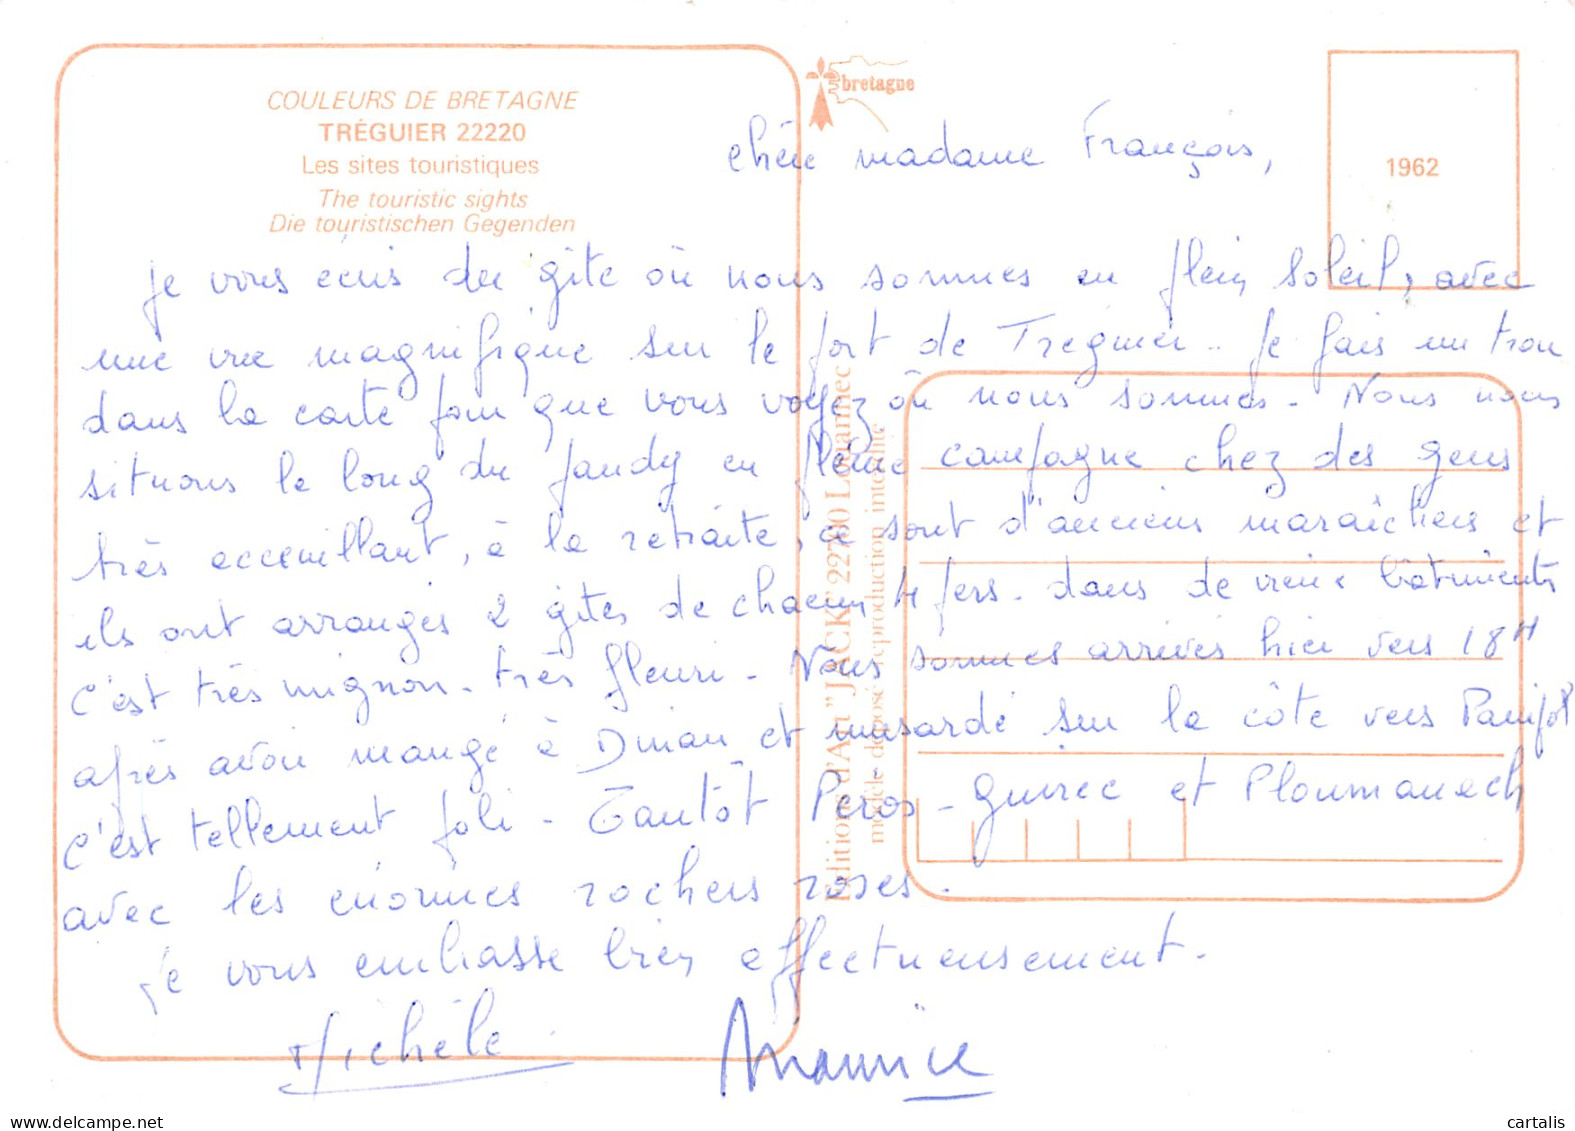 COULEURS DE BRETAGNE
TRÉGUIER 22220
Les sites touristiques
The touristic sights
Die touristischen Gegenden
bretagne
1962
Editions d'Art "JACK" 22700 Louannec
modèle déposé reproduction interdite
chère madame François,
je vous écris du gîte où nous sommes en plein soleil, avec
une vue magnifique sur le port de Treguier.. Je fais un trou
dans la carte pour que vous voyez où nous sommes - Nous nous
situons le long du Jaudy en pleine campagne chez des gens
très acceuillant, à la retraite, ce sont d'anciens maraîchers et
ils ont arrangés 2 gîtes de chacun 4 pers. dans de vieux bâtiments
c'est très mignon - très fleuri - Nous sommes arrivés hier vers 18H
après avoir mangé à Dinan et musardé sur la côte vers Paimpol
c'est tellement joli - Tantôt Peros-Guirec et Ploumanech
avec les énormes rochers roses.
Je vous embrasse bien affectueusement.
Michèle
Maurice
www.delcampe.net
cartalis